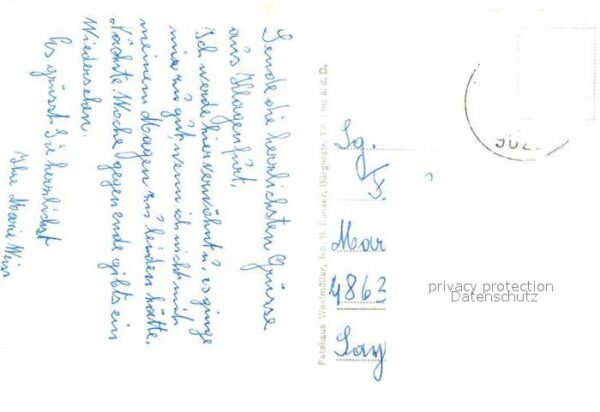 Sende die herzlichsten Grüsse
aus Klagenfurt.
Ich werde hier verwöhnt u. es ginge
mir zu gut, wenn ich nicht mit
meinem Magen zu leiden hätte.
Nächste Woche gegen ende gibts ein
Wiedersehen.
Es grüsst Sie herzlichst
Ihre Marie Weiss
Fotohaus Westmüller, Inh.
Sg.
F.
Mar
4863
Say
privacy protection
Datenschutz